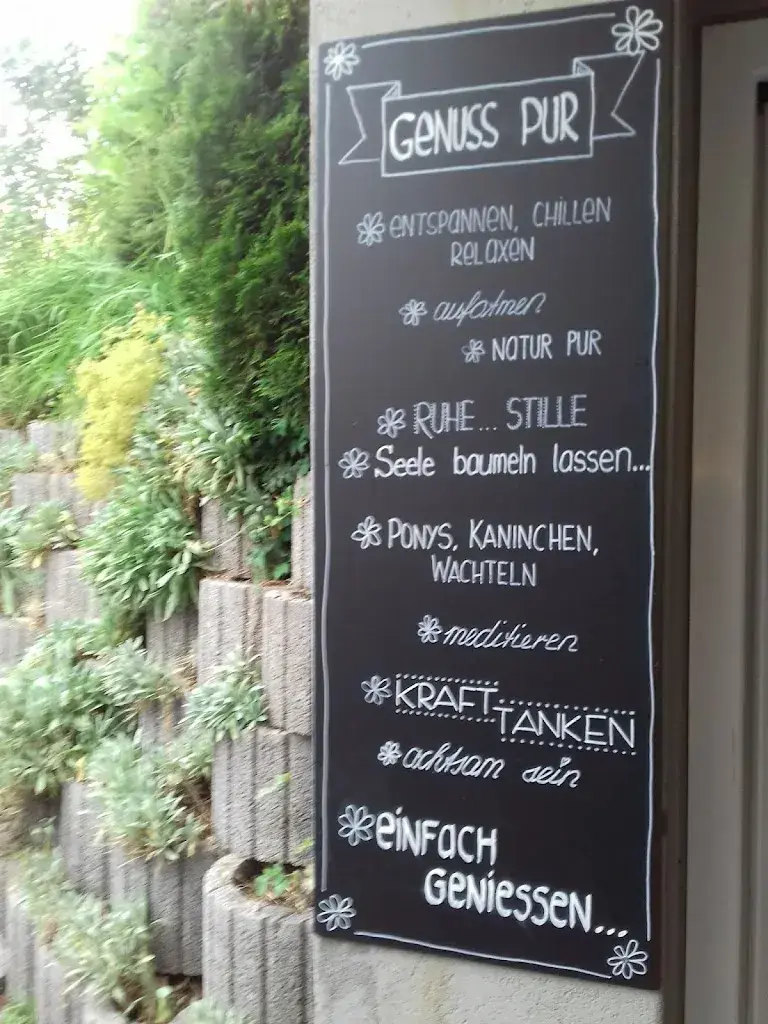 GENUSS PUR
ENTSPANNEN, CHILLEN
RELAXEN
aufatmen
NATUR PUR
RUHE... STILLE
Seele baumeln lassen...
PONYS, KANINCHEN,
WACHTELN
meditieren
KRAFT TANKEN
achtsam sein
EINFACH
GENIESSEN...